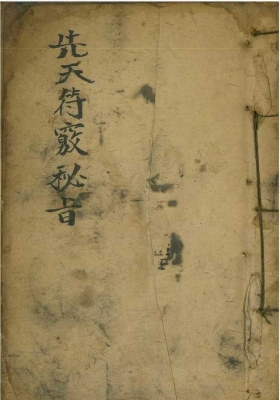 先天待竅秘旨